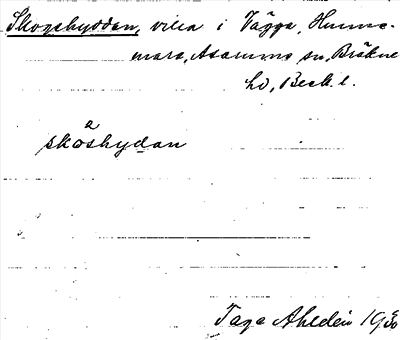 Skogshyddan, villa i Vägga, Hunne-
mara, Asarums sn, Bräkne
hd, Blek. l.
2
skòshydan
Tage Ahldén 1930